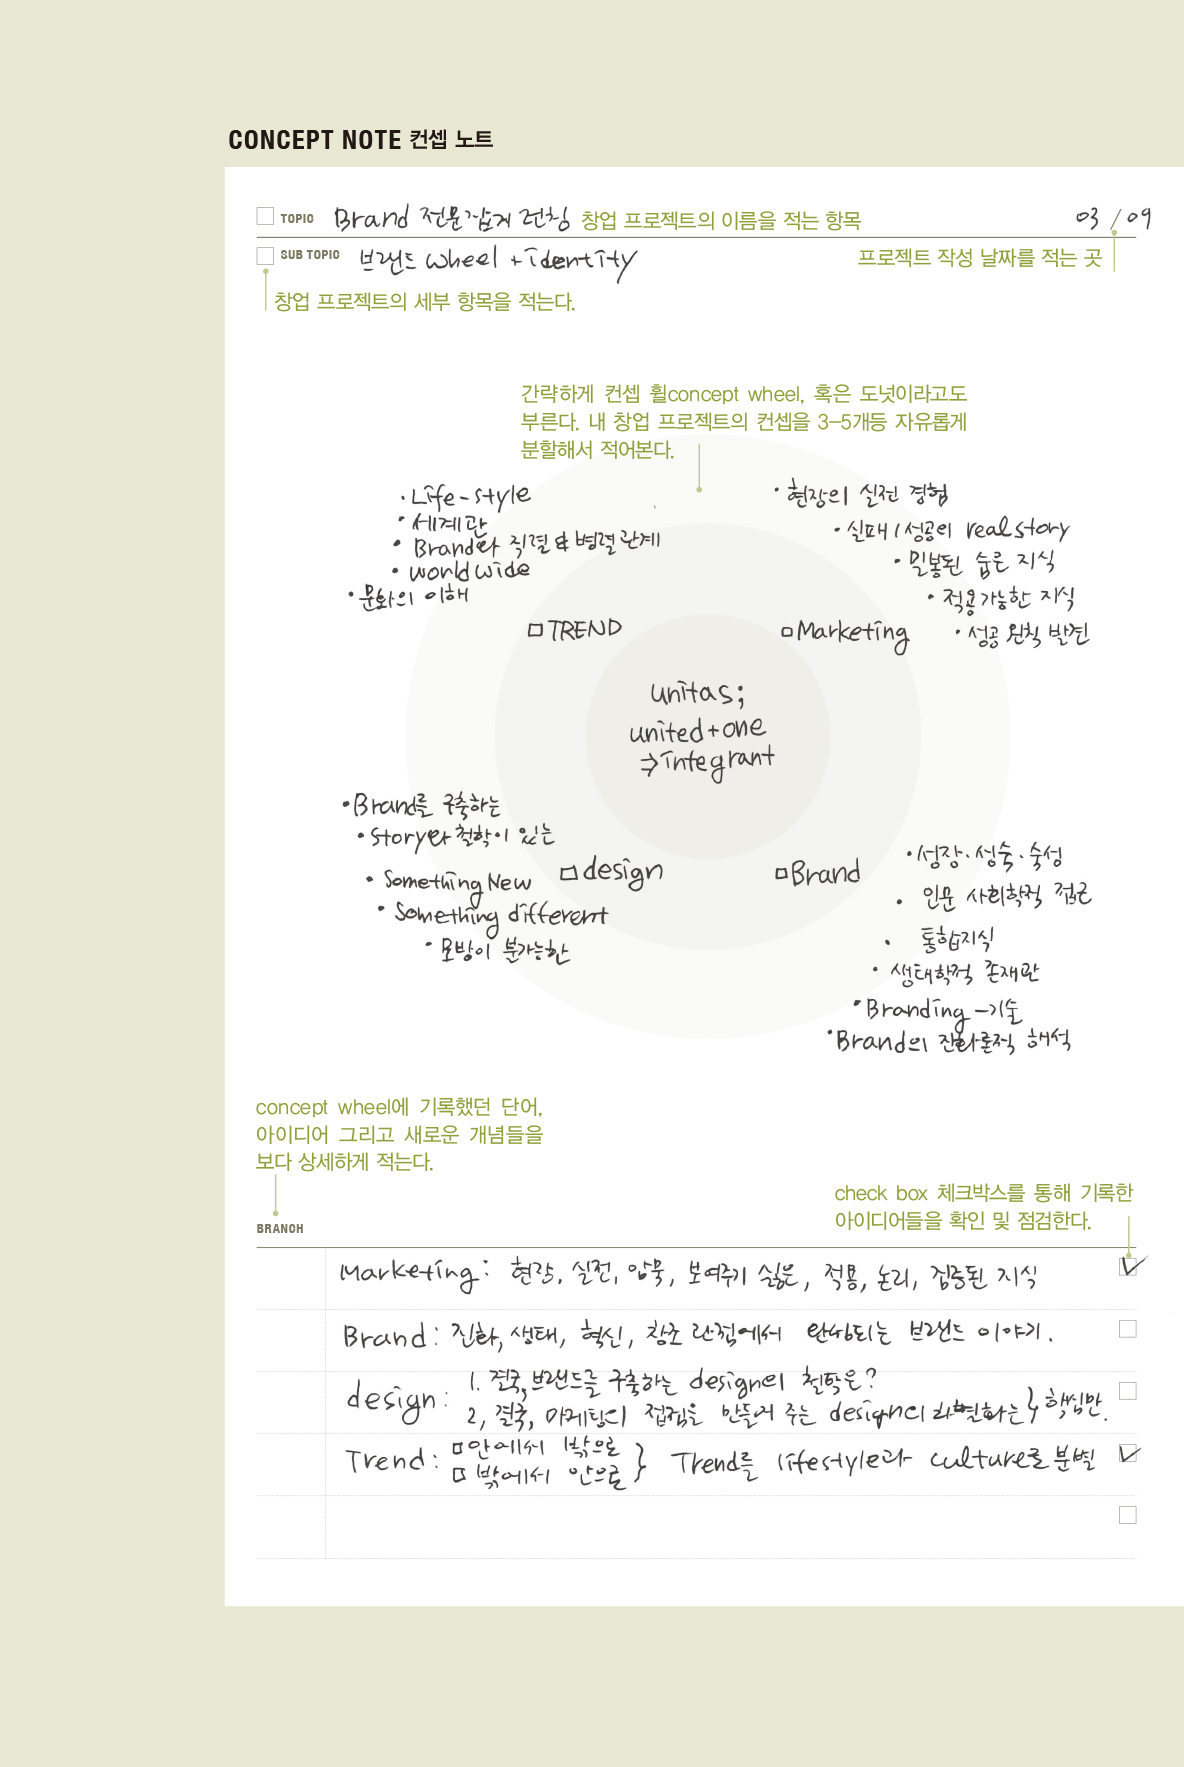 CONCEPT NOTE 컨셉 노트
TOPIC Brand 전문잡지 런칭 창업 프로젝트의 이름을 적는 항목 03/09
SUB TOPIC 브랜드 wheel + identity 프로젝트 작성 날짜를 적는 곳
창업 프로젝트의 세부 항목을 적는다.
간략하게 컨셉 휠concept wheel, 혹은 도넛이라고도
부른다. 내 창업 프로젝트의 컨셉을 3-5개등 자유롭게
분할해서 적어본다.
· Life-style
· 세계관
· Brand와 직렬 & 병렬 관계
· world wide
· 문화의 이해
□ TREND
· 현장의 실전 경험
· 실패/성공의 real story
· 밀봉된 숨은 지식
· 적용가능한 지식
· 성공 원칙 발견
□ Marketing
unitas;
united+one
⇒integrant
· Brand를 구축하는
· Story와 철학이 있는
· Something New
· Something different
· 모방이 불가능한
□ design
□ Brand
· 성장·성숙·숙성
· 인문 사회학적 접근
· 통합지식
· 생태학적 존재관
· Branding-기술
· Brand의 진화론적 해석
concept wheel에 기록했던 단어,
아이디어 그리고 새로운 개념들을
보다 상세하게 적는다.
check box 체크박스를 통해 기록한
아이디어들을 확인 및 점검한다.
BRANCH
Marketing: 현장, 실전, 암묵, 보여주기 싫은, 적용, 논리, 집중된 지식
Brand: 진화, 생태, 혁신, 창조 관점에서 완성되는 브랜드 이야기.
design: 1. 결국, 브랜드를 구축하는 design의 철학은?
2. 결국, 마케팅의 접점을 만들어 주는 design의 차별화는 } 핵심만.
Trend: □ 안에서 밖으로
□ 밖에서 안으로 } Trend를 lifestyle과 culture로 분별